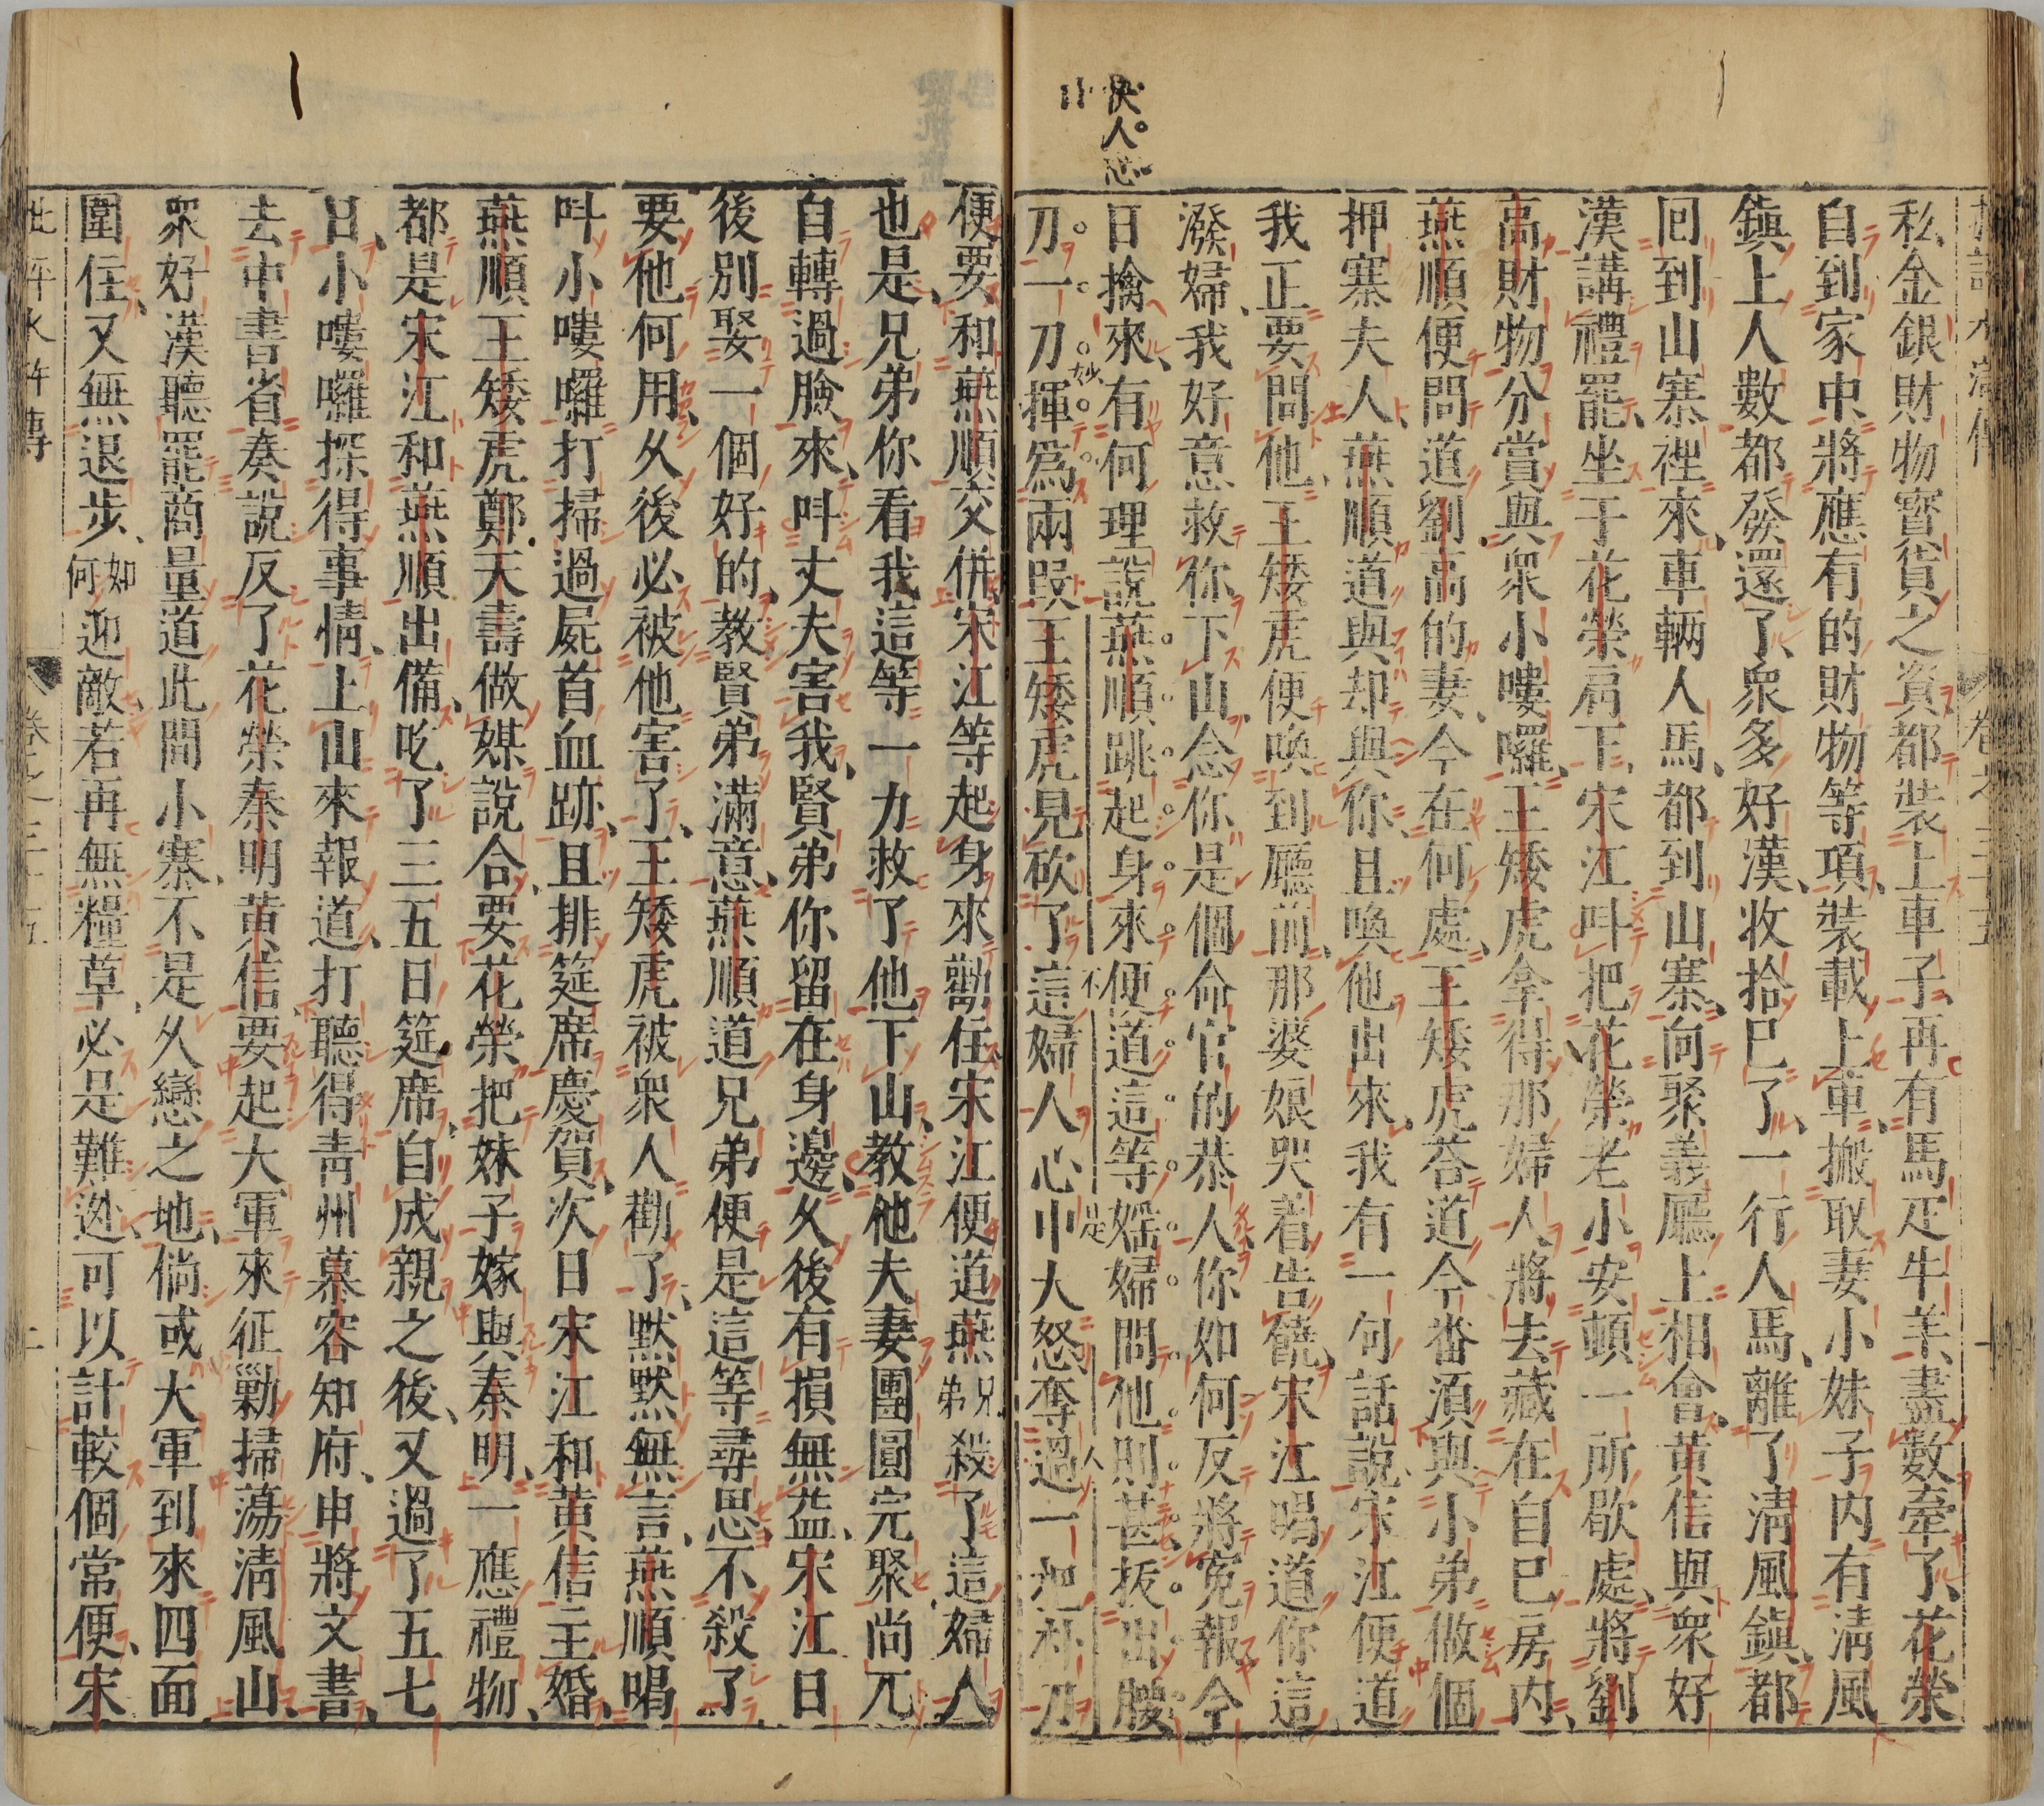 快人
私金銀財物寳貨之資都裝上車子再有馬疋牛羊盡數牽了花榮
自到家中將應有的財物等項裝載上車搬取妻小妹子内有淸風
鎭上人數都發還了衆多好漢收拾已了一行人馬離了淸風鎭都
囘到山寨裡來車輛人馬都到山寨向聚義廳上相會黄信與衆好
漢講禮罷坐于花榮肩下宋江呌把花榮老小安頓一所歇處將劉
高財物分賞與衆小嘍囉王矮虎拿得那婦人將去藏在自已房内
燕順便問道劉高的妻今在何處王矮虎荅道今畨須與小弟做個
押寨夫人燕順道與却與你且喚他出來我有一句話說宋江便道
我正要問他王矮虎便喚到廳前那婆娘哭着告饒宋江喝道你這
潑婦我好意救你下山念你是個命官的恭人你如何反將寃報今
日擒來有何理說燕順跳起身來便道這等婬婦問他則甚拔出腰
妙
刀一刀揮爲兩段王矮虎見砍了這婦人心中大怒奪過一把朴刀
不是人
便要和燕順交併宋江等起身來勸住宋江便道燕兄弟殺了這婦人
也是兄弟你看我這等一力救了他下山教他夫妻團圓完聚尚兀
自轉過臉來呌丈夫害我賢弟你留在身邊久後有損無益宋江日
後别娶一個好的教賢弟滿意燕順道兄弟便是這等尋思不殺了
要他何用久後必被他害了王矮虎被衆人勸了默默無言燕順喝
呌小嘍囉打掃過屍首血跡且排筵席慶賀次日宋江和黄信主婚
燕順王矮虎鄭天壽做媒說合要花榮把妹子嫁與秦明一應禮物
都是宋江和燕順出備吃了三五日筵席自成親之後又過了五七
日小嘍囉探得事情上山來報道打聽得靑州慕容知府申將文書
去中書省奏說反了花榮秦明黄信要起大軍來征勦掃蕩淸風山
衆好漢聽罷商量道此間小寨不是久戀之地倘或大軍到來四面
圍住又無退步如何迎敵若再無糧草必是難迯可以計較個常便宋